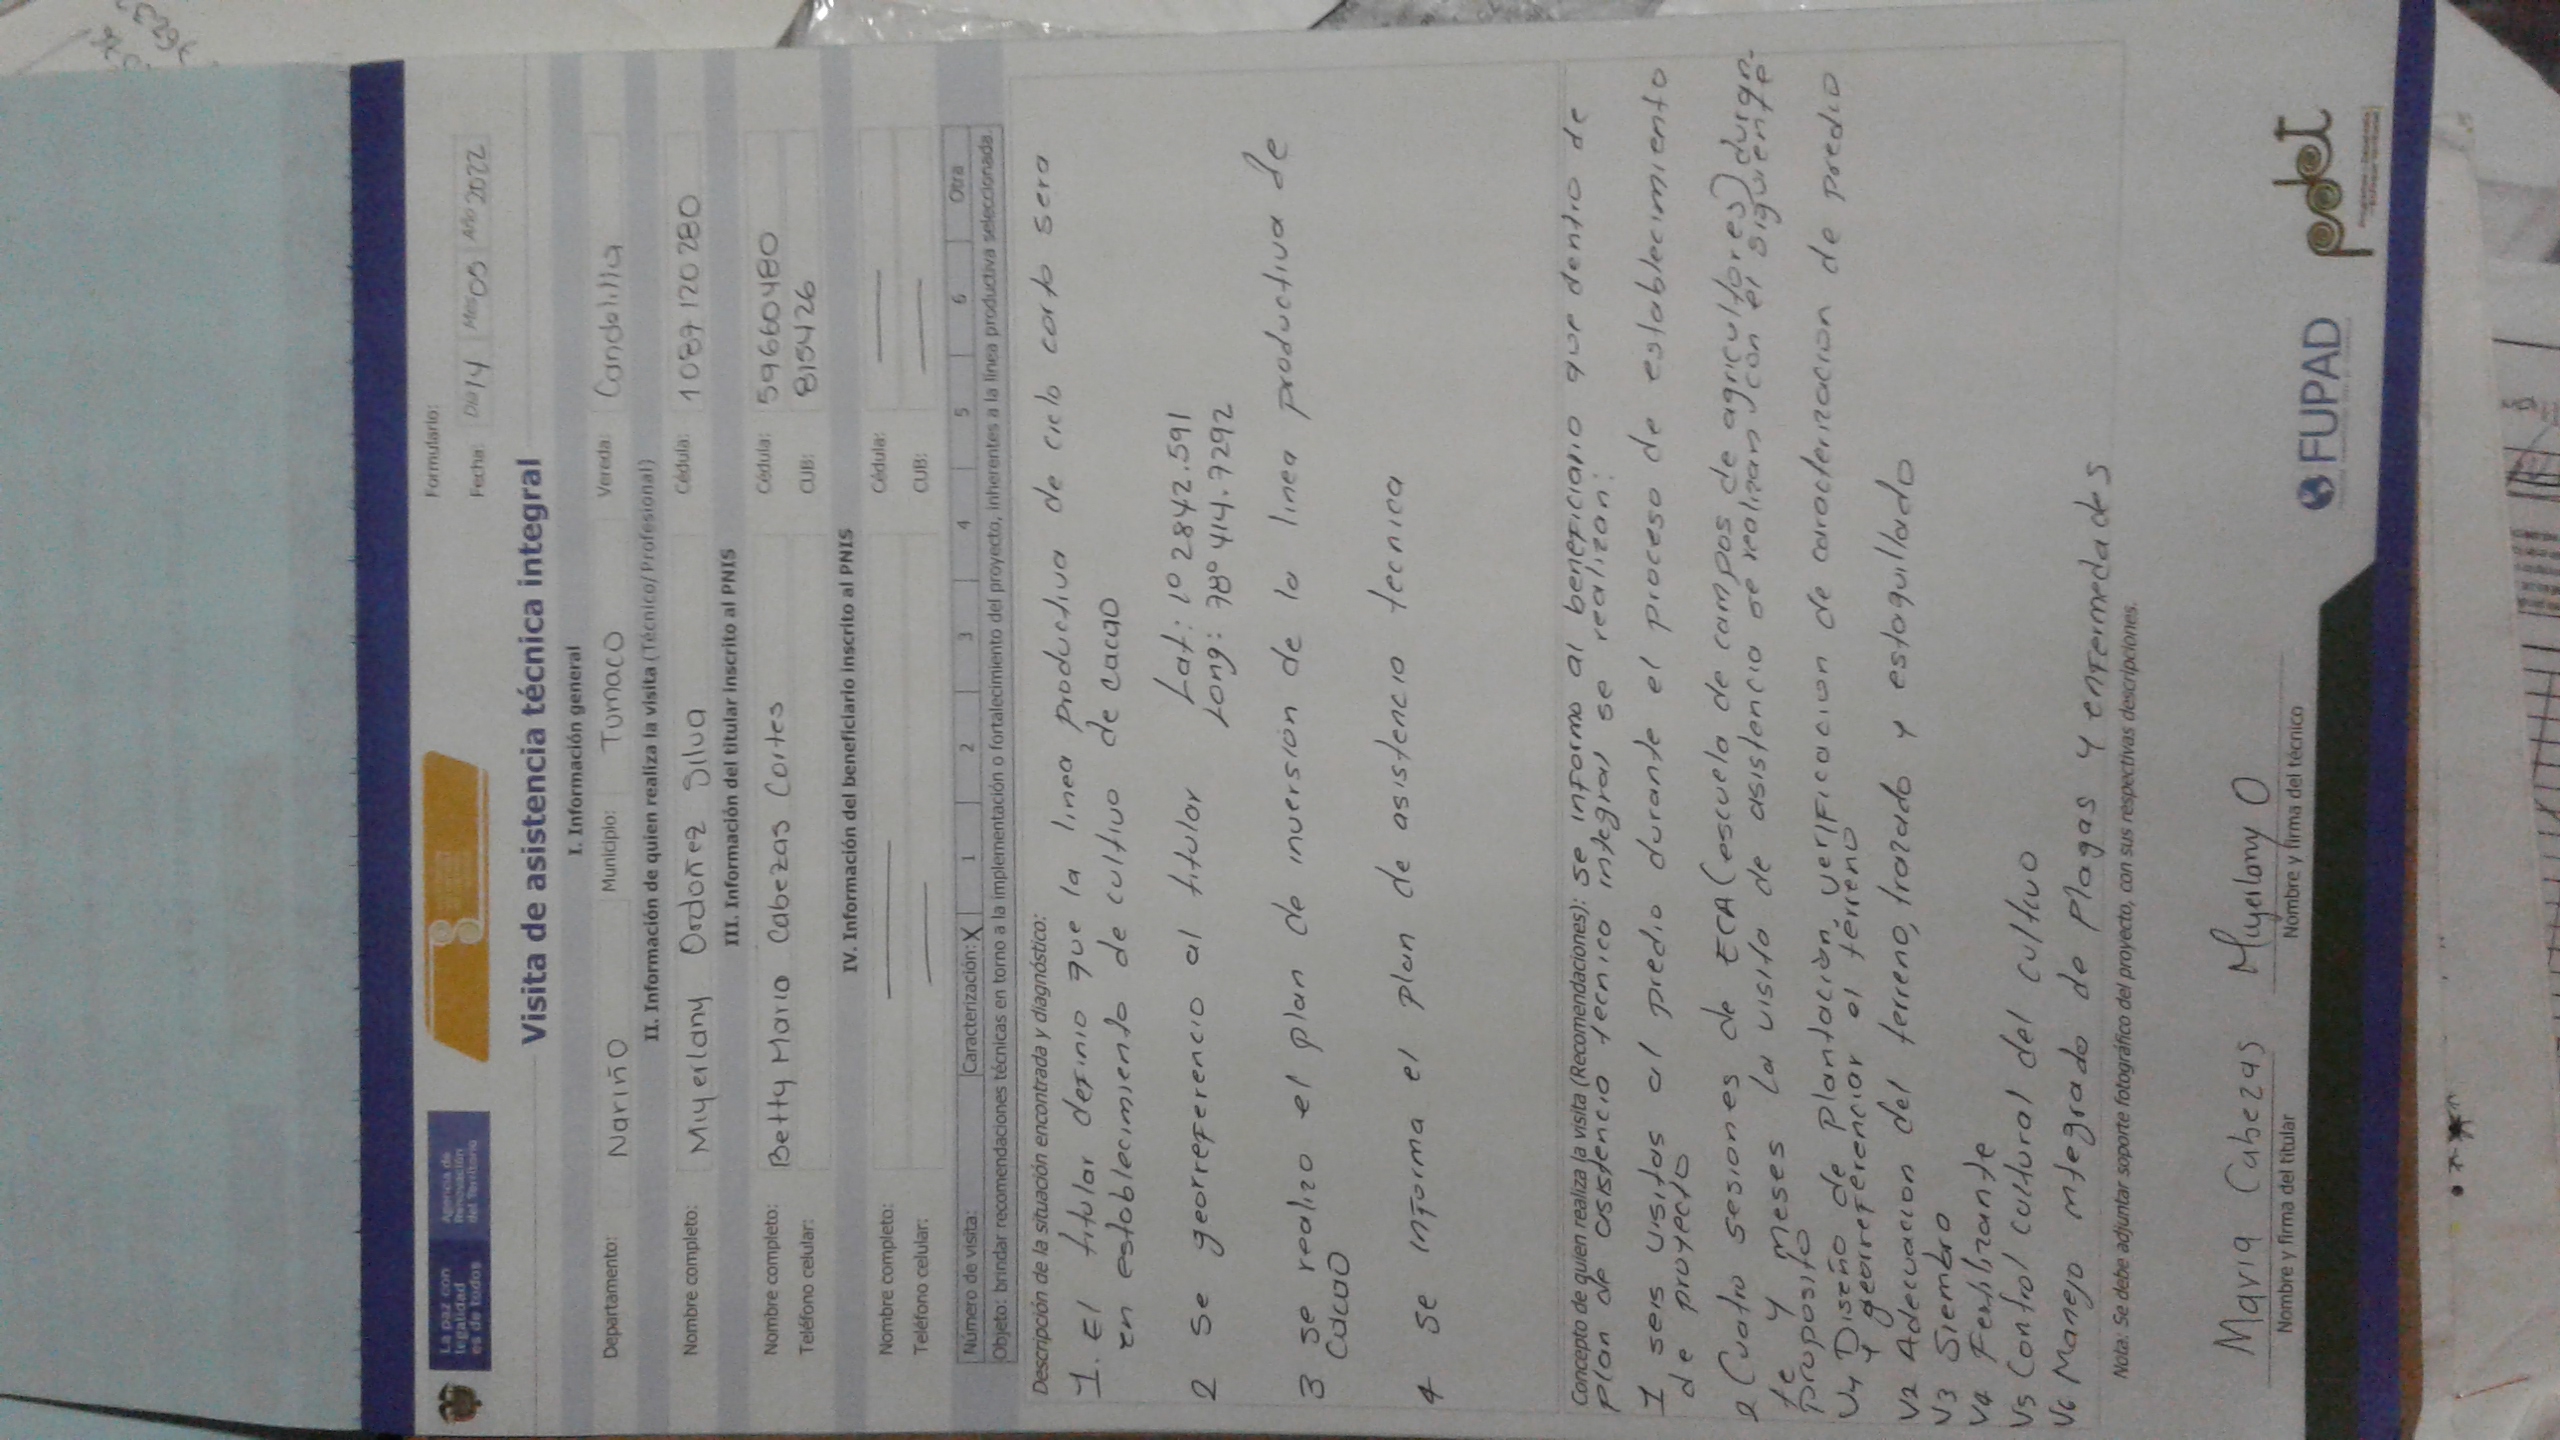 La paz con
legalidad
es de todos
Agencia de
Renovación
del Territorio
Formulario:
Fecha: Día 14 Mes 05 Año 2022
Visita de asistencia técnica integral
I. Información general
Departamento: Nariño Municipio: Tumaco Vereda: Candelilla
II. Información de quien realiza la visita (Técnico/Profesional)
Nombre completo: Muyerlany Ordoñez Silva Cédula: 1089120280
III. Información del titular inscrito al PNIS
Nombre completo: Betty Maria Cabezas Cortes Cédula: 59660480
Teléfono celular: CUB: 815426
IV. Información del beneficiario inscrito al PNIS
Nombre completo: Cédula:
Teléfono celular: CUB:
Número de visita: Caracterización: X 1 2 3 4 5 6 Otra
Objeto: brindar recomendaciones técnicas en torno a la implementación o fortalecimiento del proyecto, inherentes a la línea productiva seleccionada.
Descripción de la situación encontrada y diagnóstico:
1. El titular definio que la linea productiva de ciclo corto sera
en establecimiento de cultivo de cacao
2 se georreferencio al titular Lat: 1º 2842.591
Long: 78º 414.7292
3 se realizo el plan de inversion de la linea productiva de
cacao
4 se informa el plan de asistencia tecnica
Concepto de quien realiza la visita (Recomendaciones): se informo al beneficiario que dentro de
plan de asistencia tecnico integral se realizan:
1 seis visitas al predio durante el proceso de establecimiento
de proyecto
2 Cuatro sesiones de ECA (escuela de campos de agricultores) duran-
te 4 meses La visita de asistencia se realizan con el siguiente
proposito
V1 Diseño de plantación, verificacion de caracterizacion de predio
y georreferenciar el terreno
V2 Adecuacion del terreno, trazado y estaquillado
V3 Siembra
V4 Fertilizante
V5 Control cultural del cultivo
V6 Manejo integrado de plagas y enfermedades
Nota: Se debe adjuntar soporte fotográfico del proyecto, con sus respectivas descripciones.
Maria Cabezas Muyerlany O
Nombre y firma del titular Nombre y firma del técnico
FUPAD
pdet